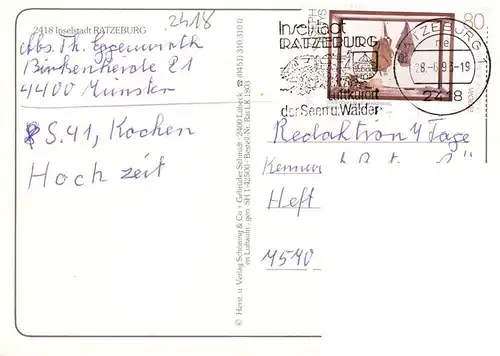 2418 Inselstadt RATZEBURG
2418
Abs. Th. Eggenwirth
Birkenheide 21
4400 Münster
S. 41, Kochen
Hochzeit
© Herst. u. Verlag Schöning & Co + Gebrüder Schmidt · 2400 Lübeck · ☎ (0451) 310 310 0
gen. SH 1-42500 · Bestell-Nr. Rat LK 1803
Inselstadt
RATZEBURG
Luftkurort
der Seen u. Wälder
RATZEBURG 1
28.-6.93-19
2418
80
Redaktion 4 Tage
Heft
4570